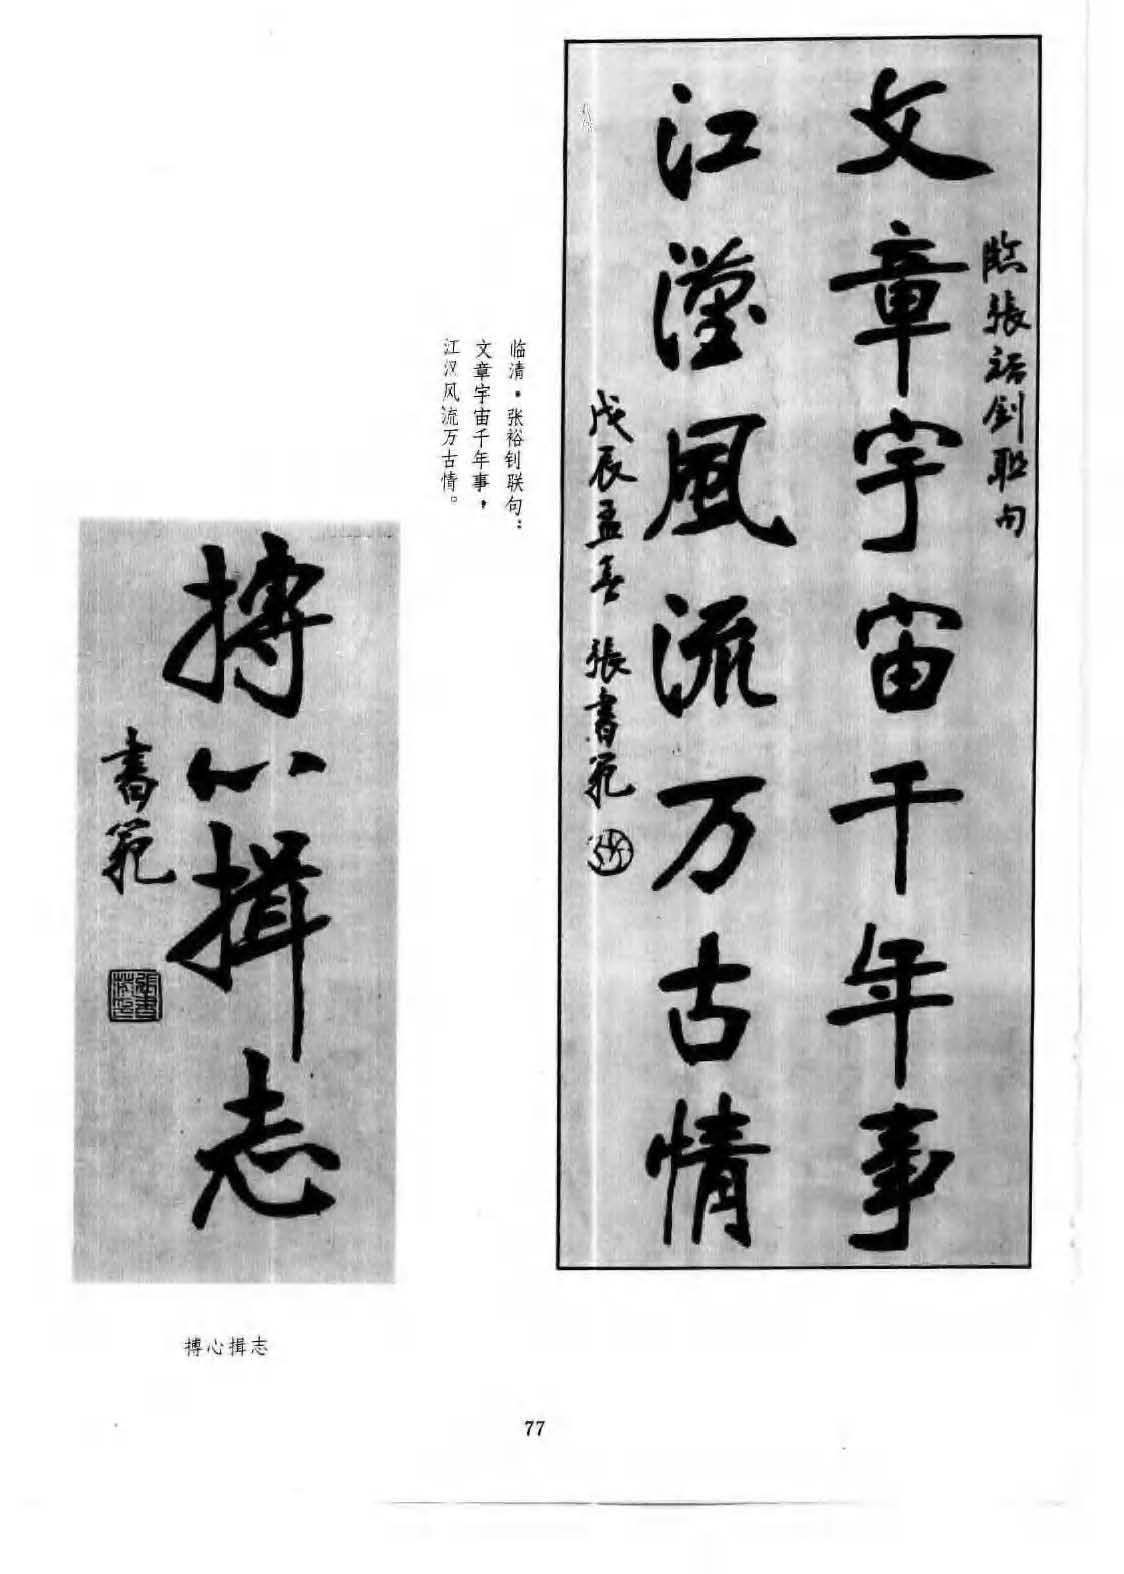 臨張裕釗联句
文章宇宙千年事
江漢風流万古情
戊辰孟春 張書範
临清·张裕钊联句：
文章宇宙千年事，
江汉风流万古情。
搏心揖志
書範
張書範印
搏心揖志
77